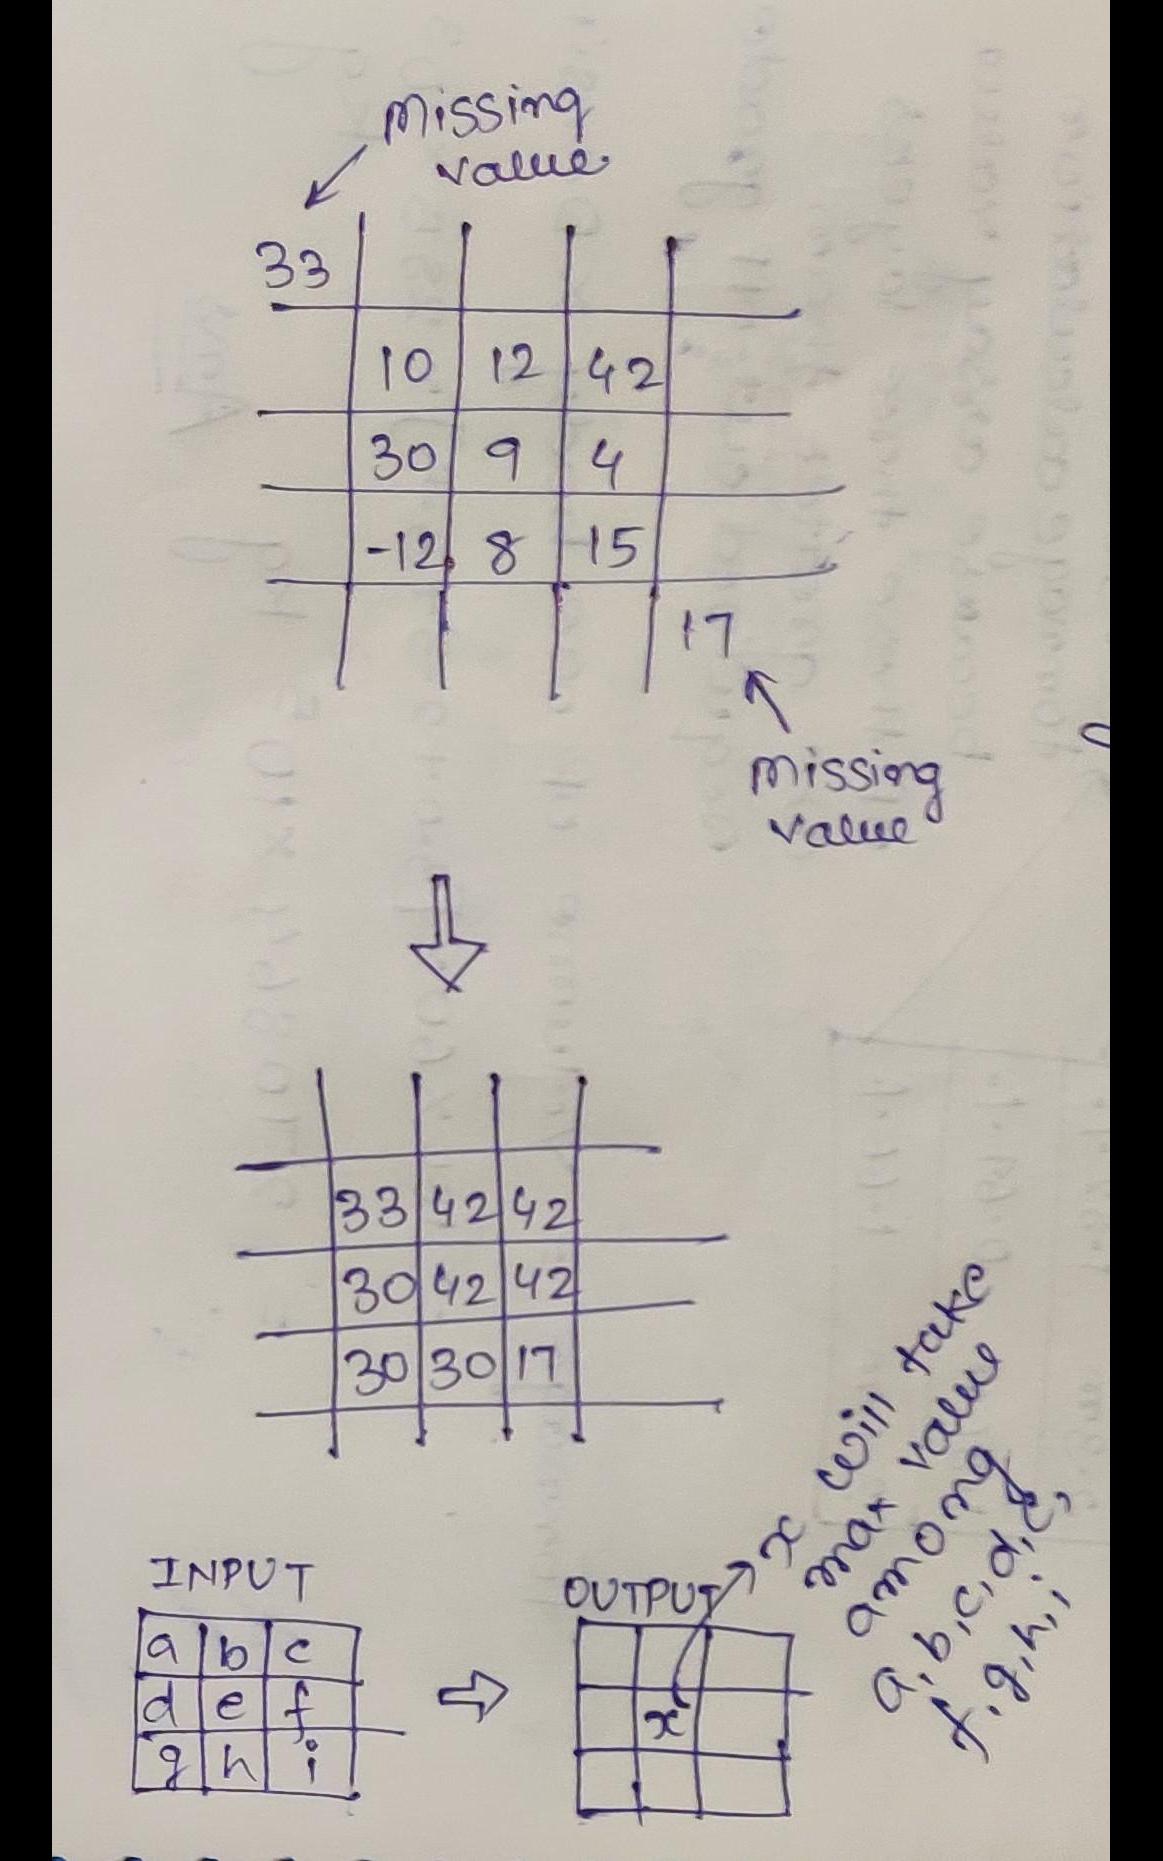 Missing
value
33
10 12 42
30 9 4
-12 8 15
17
Missing
value
33 42 42
30 42 42
30 30 17
INPUT
a b c
d e f
g h i
OUTPUT
x
x will take
max value
among
a, b, c, d, e,
f, g, h, i